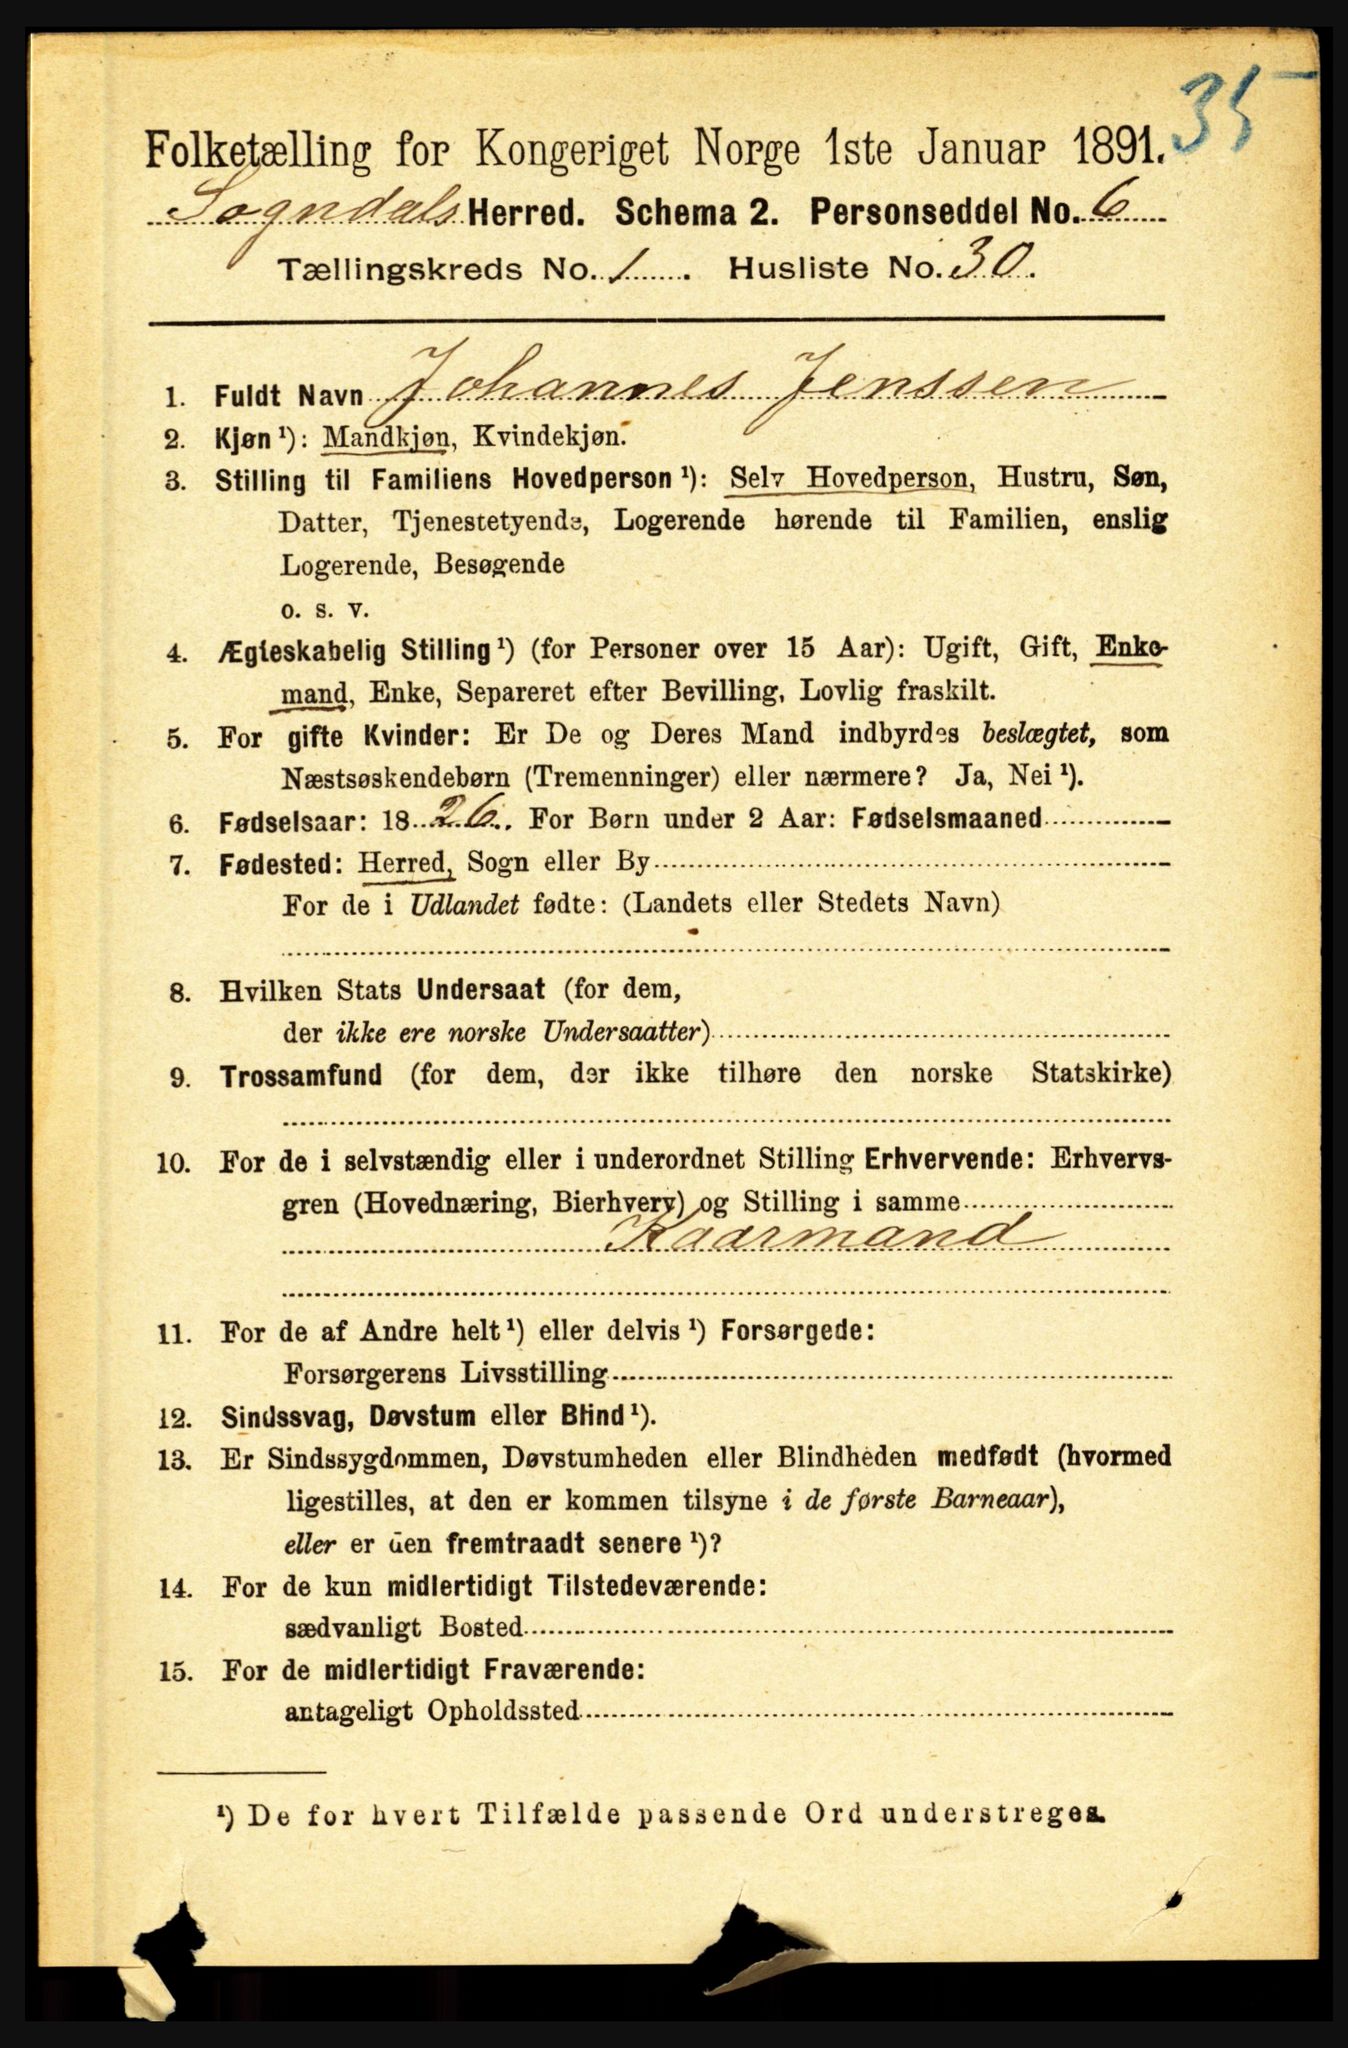 35
Folketælling for Kongeriget Norge 1ste Januar 1891.
Sogndals Herred. Schema 2. Personseddel No. 6
Tællingskreds No. 1. Husliste No. 30.
1. Fuldt Navn Johannes Jenssen
2. Kjøn ¹): Mandkjøn, Kvindekjøn.
3. Stilling til Familiens Hovedperson ¹): Selv Hovedperson, Hustru, Søn,
Datter, Tjenestetyende, Logerende hørende til Familien, enslig
Logerende, Besøgende
o. s. v.
4. Ægteskabelig Stilling ¹) (for Personer over 15 Aar): Ugift, Gift, Enke-
mand, Enke, Separeret efter Bevilling, Lovlig fraskilt.
5. For gifte Kvinder: Er De og Deres Mand indbyrdes beslægtet, som
Næstsøskendebørn (Tremenninger) eller nærmere? Ja, Nei ¹).
6. Fødselsaar: 1826. For Børn under 2 Aar: Fødselsmaaned
7. Fødested: Herred, Sogn eller By
For de i Udlandet fødte: (Landets eller Stedets Navn)
8. Hvilken Stats Undersaat (for dem,
der ikke ere norske Undersaatter)
9. Trossamfund (for dem, der ikke tilhøre den norske Statskirke)
10. For de i selvstændig eller i underordnet Stilling Erhvervende: Erhvervs-
gren (Hovednæring, Bierhverv) og Stilling i samme
Kaarmand
11. For de af Andre helt ¹) eller delvis ¹) Forsørgede:
Forsørgerens Livsstilling
12. Sindssvag, Døvstum eller Blind ¹).
13. Er Sindssygdommen, Døvstumheden eller Blindheden medfødt (hvormed
ligestilles, at den er kommen tilsyne i de første Barneaar),
eller er den fremtraadt senere ¹)?
14. For de kun midlertidigt Tilstedeværende:
sædvanligt Bosted
15. For de midlertidigt Fraværende:
antageligt Opholdssted
¹) De for hvert Tilfælde passende Ord understreges.